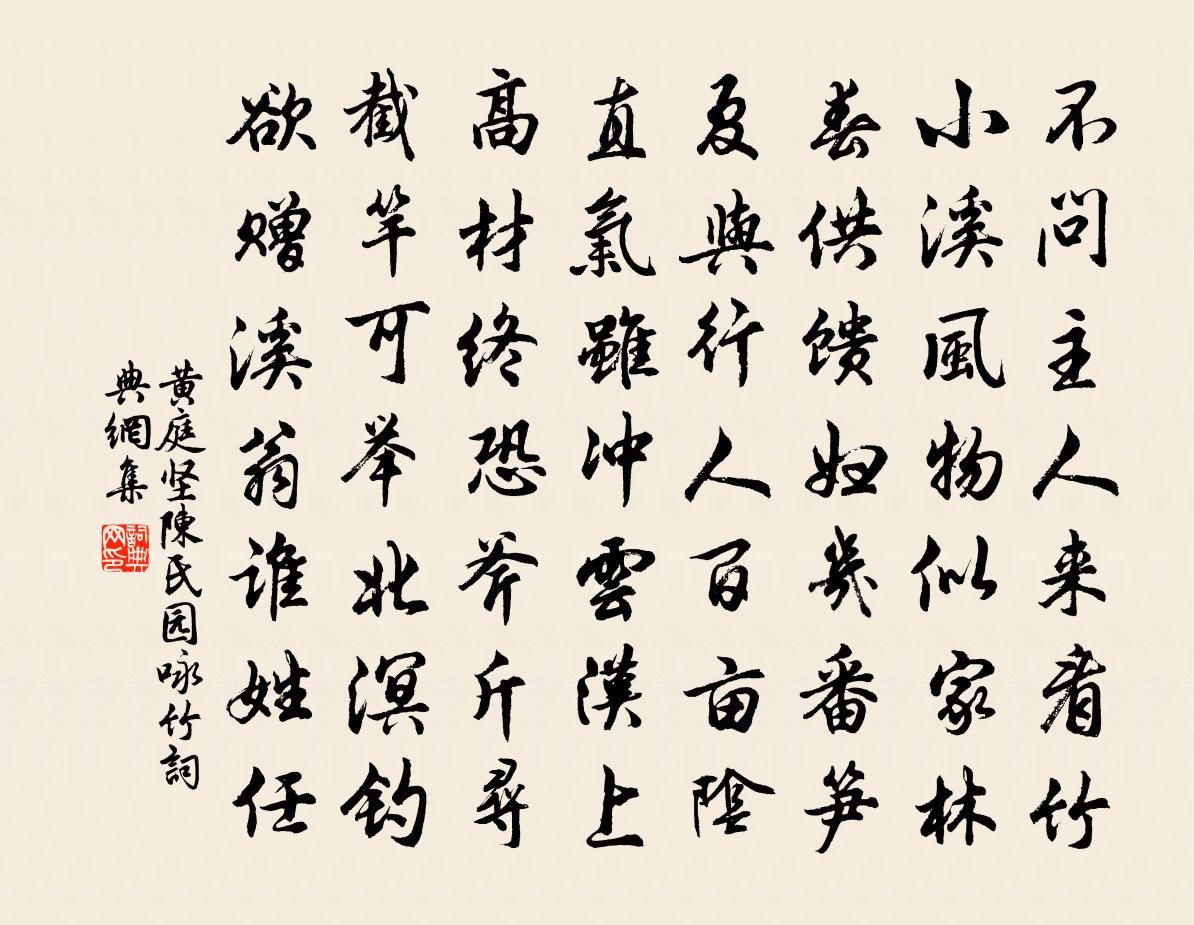 不问主人来看竹
小溪風物似家林
春供馈妇幾番笋
夏與行人百亩陰
直氣雖冲雲漢上
高材终恐斧斤尋
截竿可举北溟钓
欲赠溪翁谁姓任
黄庭坚陳氏园咏竹詞
典網集
詞典网印